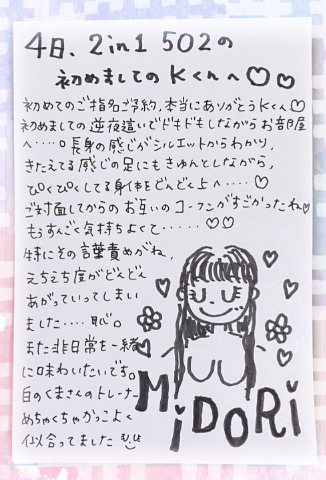 4日、2in1 502の
初めましてのKくんへ♡♡
初めてのご指名ご予約、本当にありがとうKくん♡
初めましての逆夜這いでドキドキしながらお部屋
へ‥‥。長身の感じがシルエットからわかり、
きたえてる感じの足にもきゅんとしながら、
ぴくぴくしてる身体をどんどん上へ‥‥♡
ご対面してからのお互いのコーフンがすごかったね♥
もうすんごく気持ちよくて‥‥‥♡♡
特にその言葉責めがね、
えちえち度がどんどん
あがっていってしまい
ました‥‥恥。
また非日常を一緒
に味わいたいです。
白のくまさんのトレーナー
めちゃくちゃかっこよく
似合ってました
MiDORi